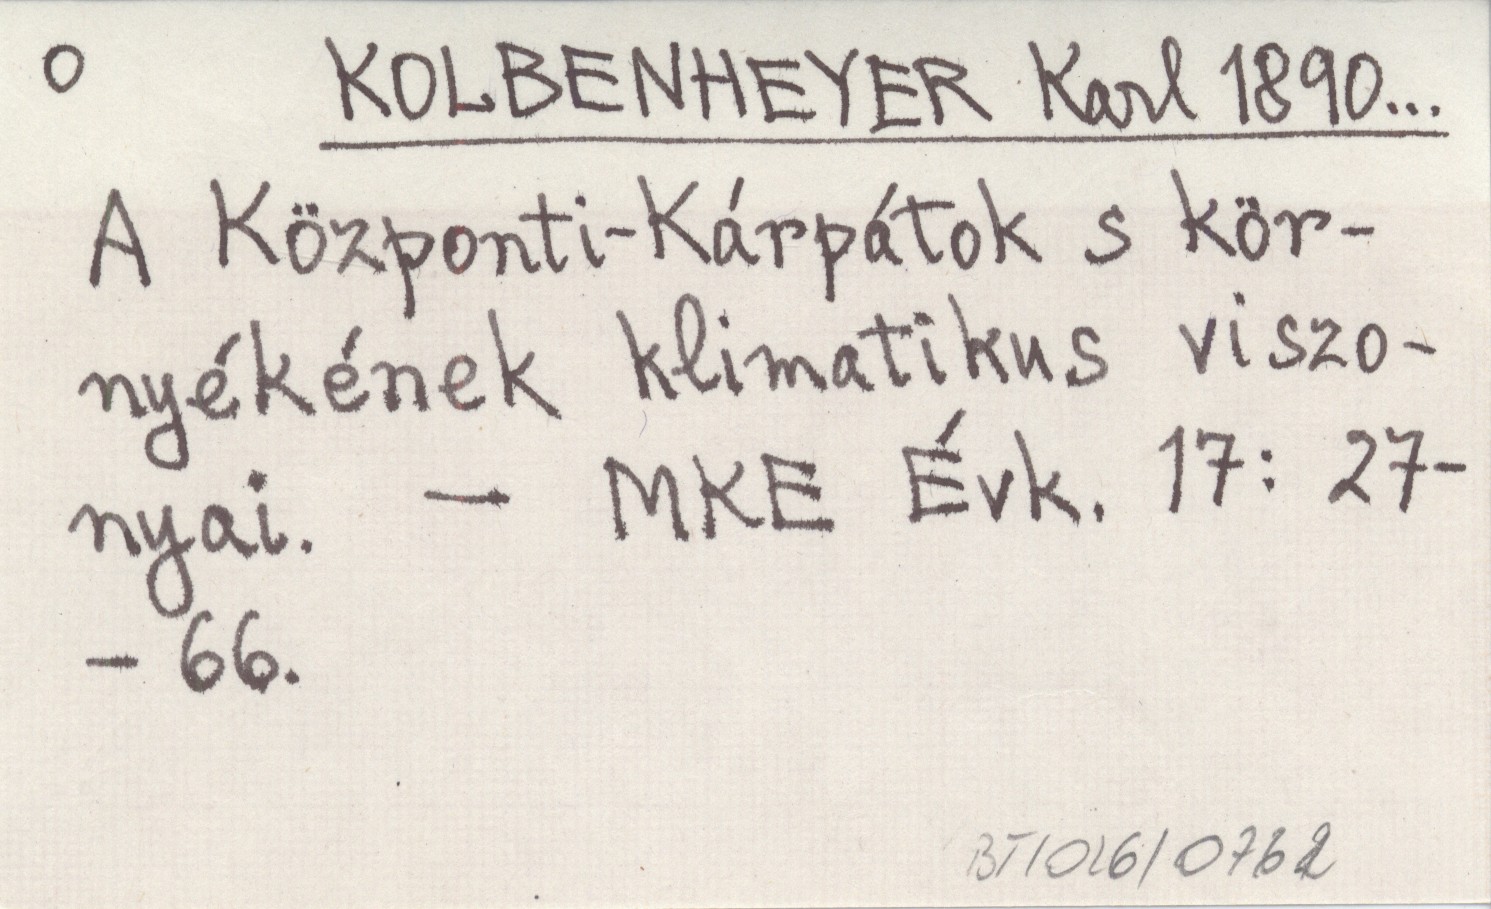 O KOLBENHEYER Karl 1890...
A Központi-Kárpátok s kör-
nyékének klimatikus viszo-
nyai. — MKE Évk. 17: 27-
- 66.
BT/026/0762